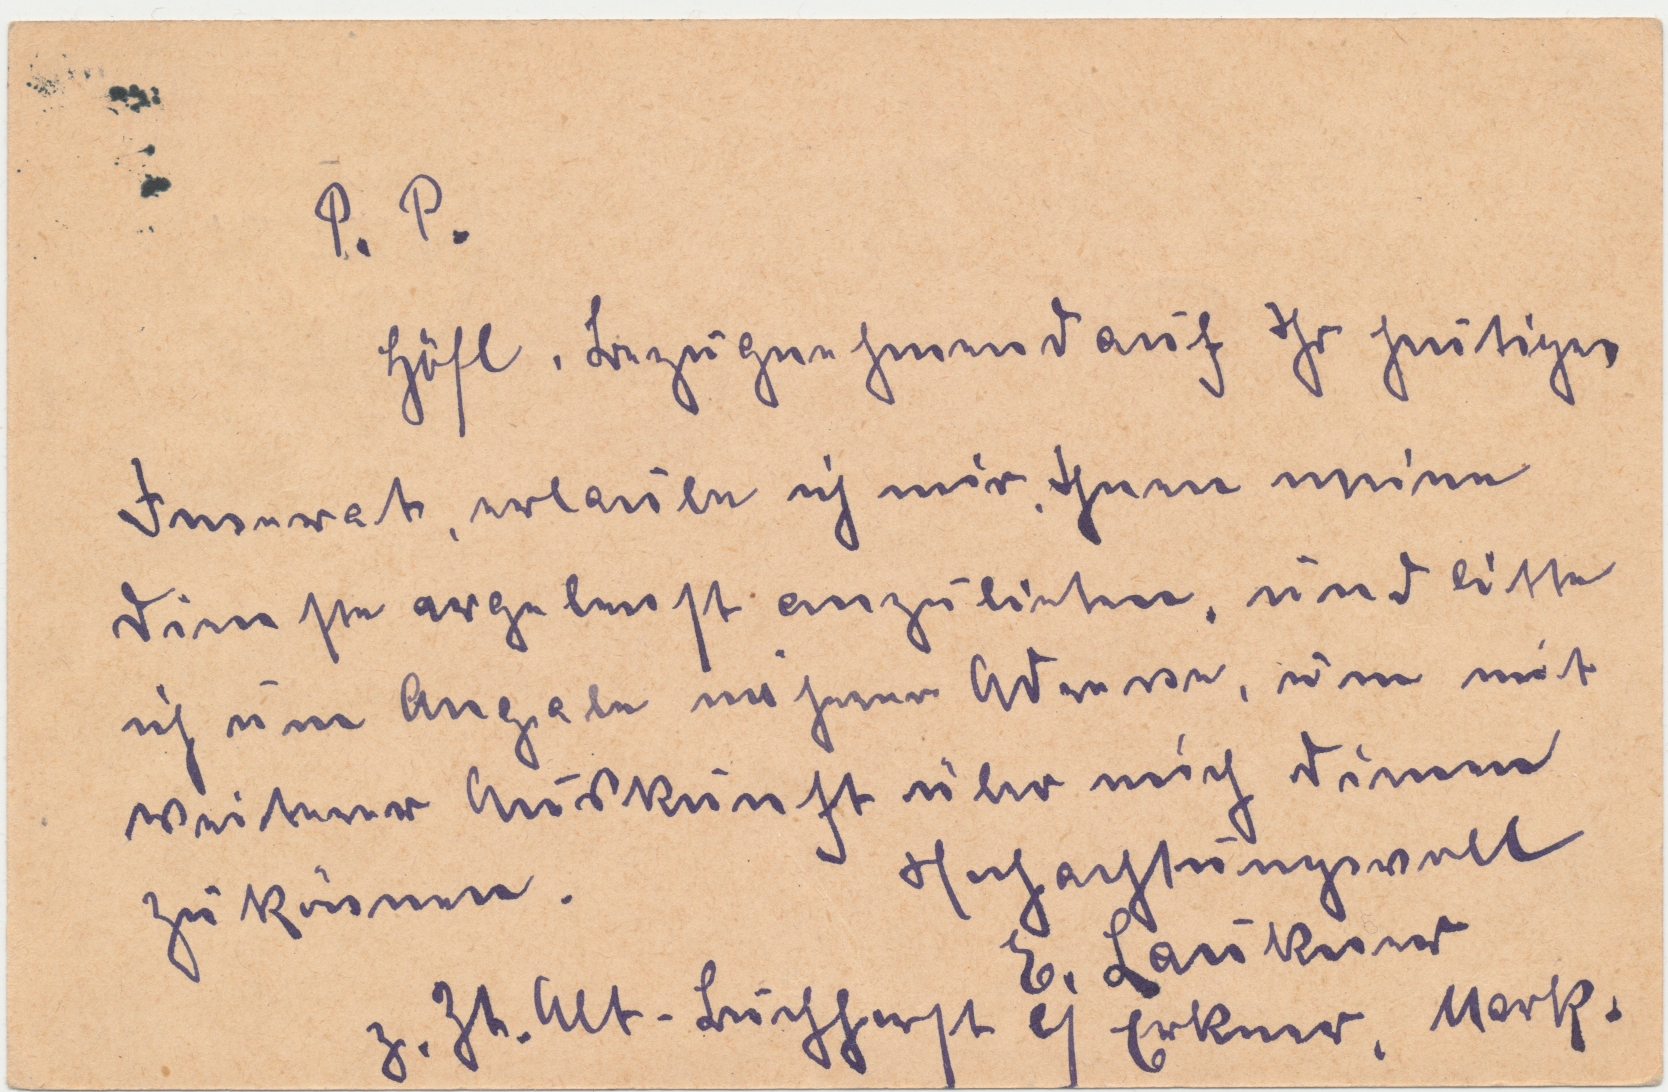 P. P.
Höfl. bezugnehmend auf Ihr heutiges
Inserat, erlaube ich mir, Ihnen meine
Dienste ergebenst anzubieten, und bitte
ich um Angabe näherer Adresse, um mit
weiterer Auskunft über mich dienen
zu können.
Hochachtungsvoll
E. Laukner
z. Zt. Alt-Buchhorst b/ Erkner, Mark.